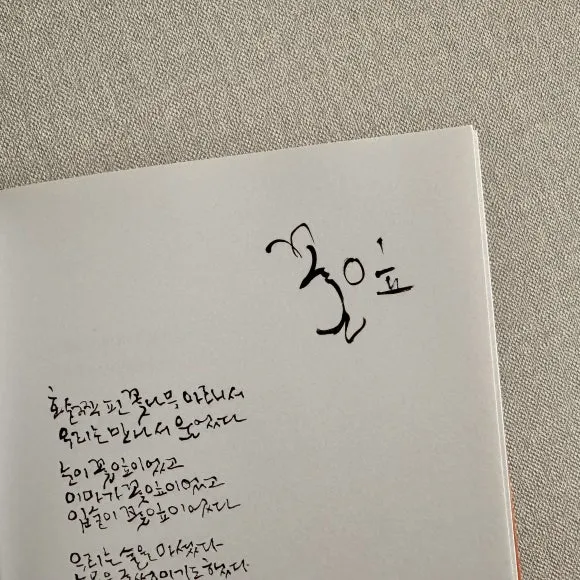 꽃잎
활짝 핀 꽃나무 아래서
우리는 만나서 웃었다
눈이 꽃잎이었고
이마가 꽃잎이었고
입술이 꽃잎이었다
우리는 술을 마셨다
눈물을 글썽이기도 했다